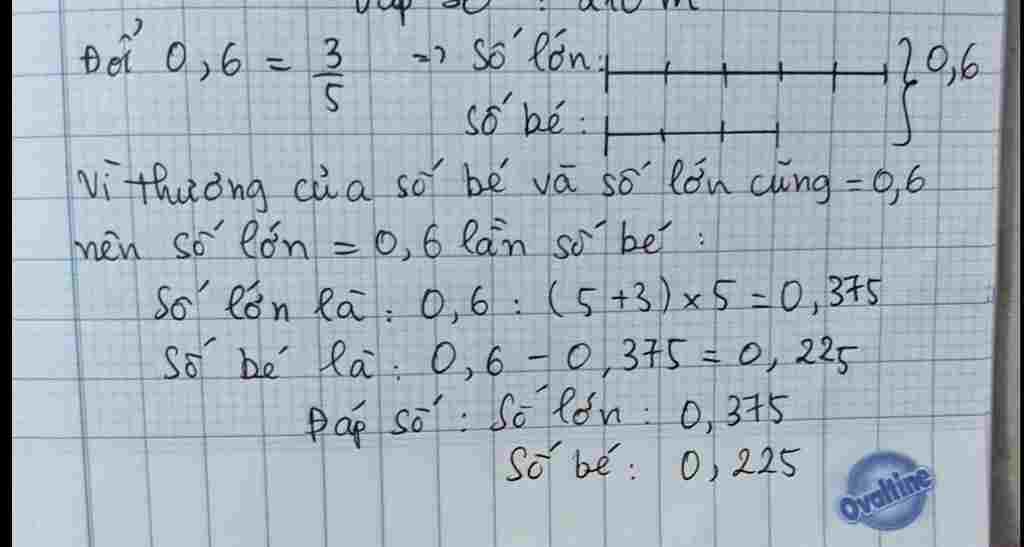 Đổi 0,6 = 3/5 => Số lớn: 0,6
Số bé:
Vì thương của số bé và số lớn cũng = 0,6
nên số lớn = 0,6 lần số bé:
Số lớn là: 0,6 : (5+3) × 5 = 0,375
Số bé là: 0,6 - 0,375 = 0,225
Đáp số: Số lớn: 0,375
Số bé: 0,225
Ovaltine